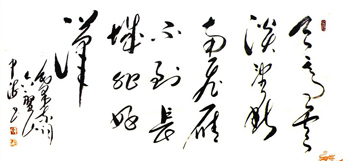 天高云
淡望断
南飞雁
不到长
城非好
汉